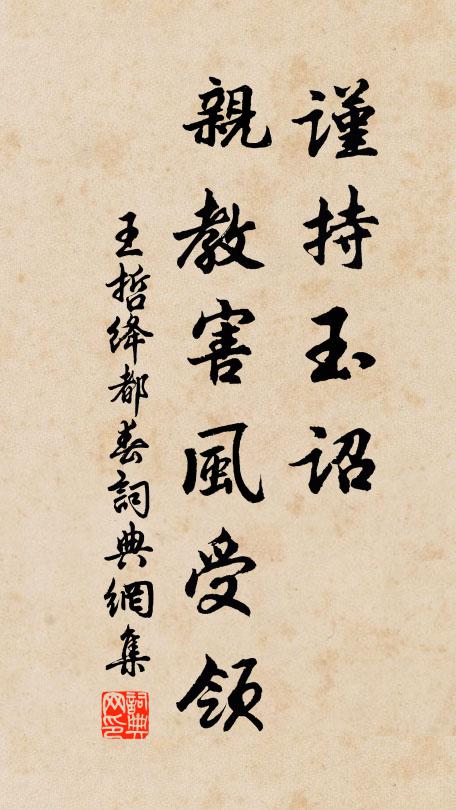 謹持玉詔
親教害風受領
王哲绛都春詞典網集
詞典网印